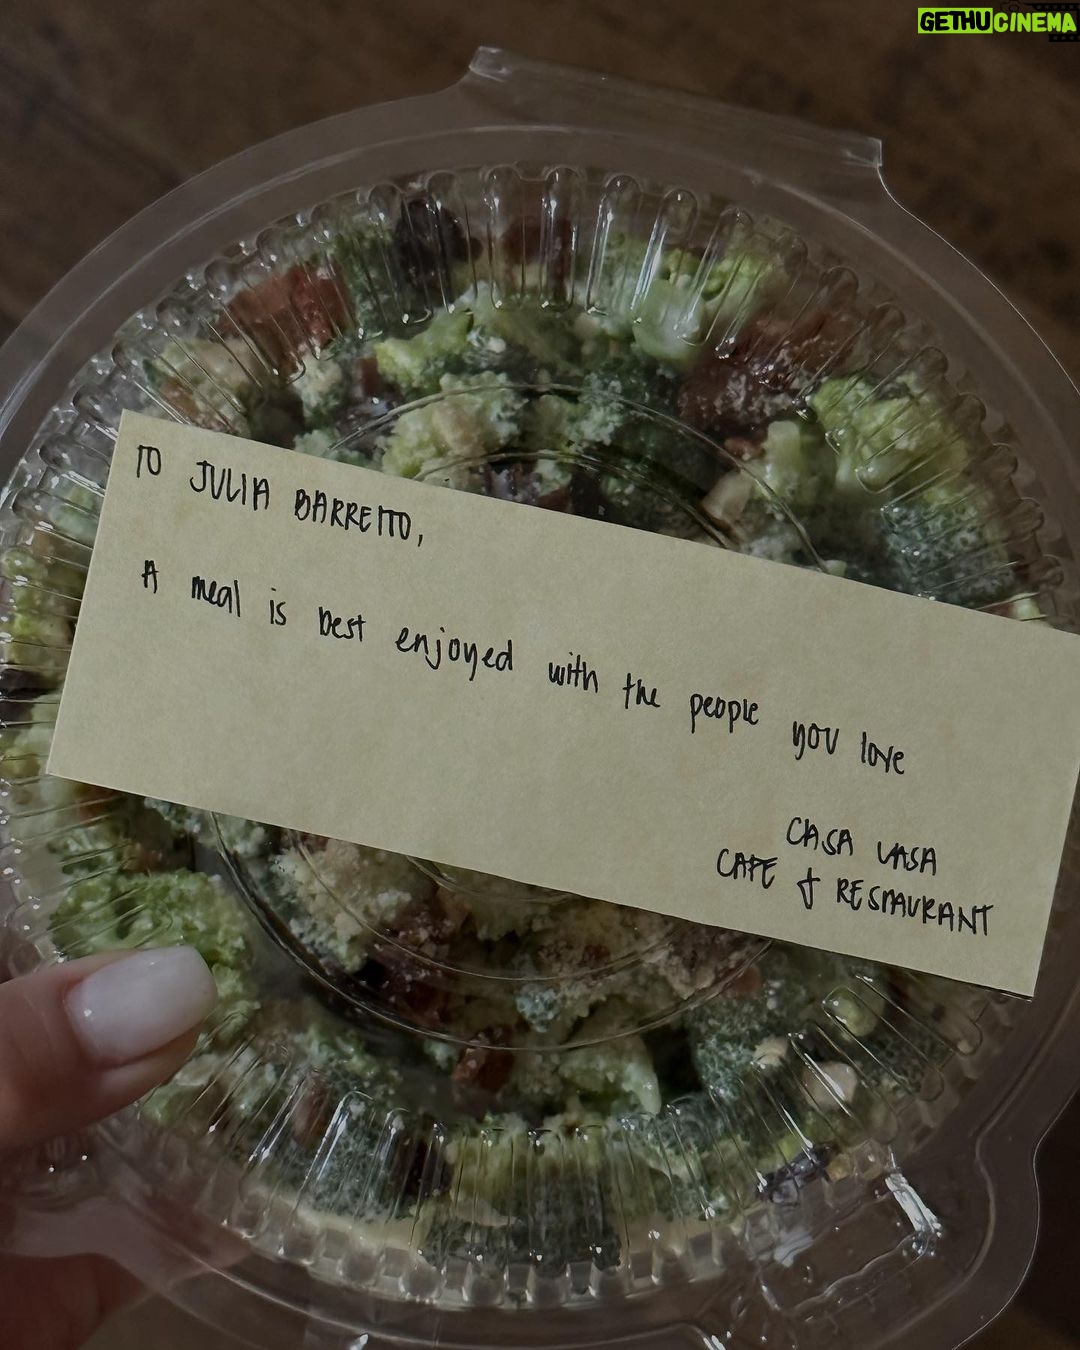 GETHUCINEMA
TO JULIA BARRETTO,
A meal is best enjoyed with the people you love
CASA VASA
CAFE & RESTAURANT